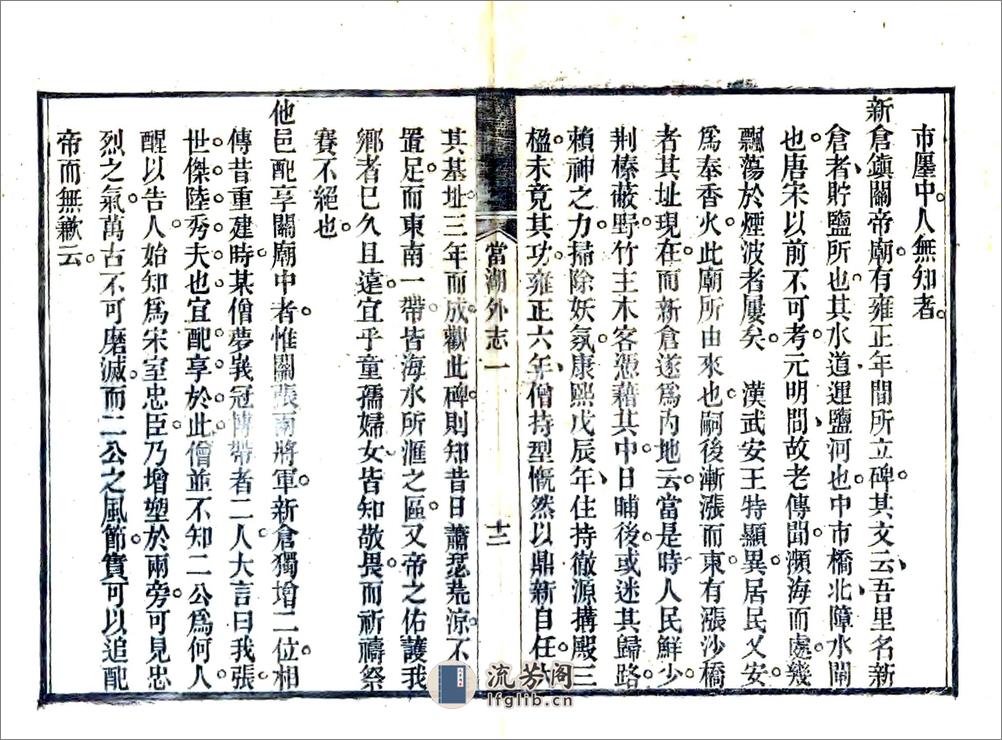 市廛中人無知者
新倉鎮關帝廟有雍正年間所立碑其文云吾里名新
倉者貯鹽所也其水道運鹽河也中市橋北障水閘
也唐宋以前不可考元明間故老傳聞瀕海而處幾
飄蕩於煙波者屢矣　漢武安王特顯異居民乂安
爲奉香火此廟所由來也嗣後漸漲而東有漲沙橋
者其址現在而新倉遂爲內地云當是時人民鮮少
荆榛蔽野竹主木客憑藉其中日晡後或迷其歸路
賴神之力掃除妖氛康熙戊辰年住持徹源搆殿三
楹未竟其功雍正六年僧持型慨然以鼎新自任去
當湖外志一
十二
其基址三年而成觀此碑則知昔日蕭瑟荒涼不
置足而東南一帶皆海水所滙之區又帝之佑護我
鄉者已久且遠宜乎童孺婦女皆知敬畏而祈禱祭
賽不絕也
他邑配享關廟中者惟關張兩將軍新倉獨增二位相
傳昔重建時某僧夢峩冠博帶者二人大言曰我張
世傑陸秀夫也宜配享於此僧並不知二公爲何人
醒以告人始知爲宋室忠臣乃增塑於兩旁可見忠
烈之氣萬古不可磨滅而二公之風節實可以追配
帝而無歉云
流芳阁
lfglib.cn